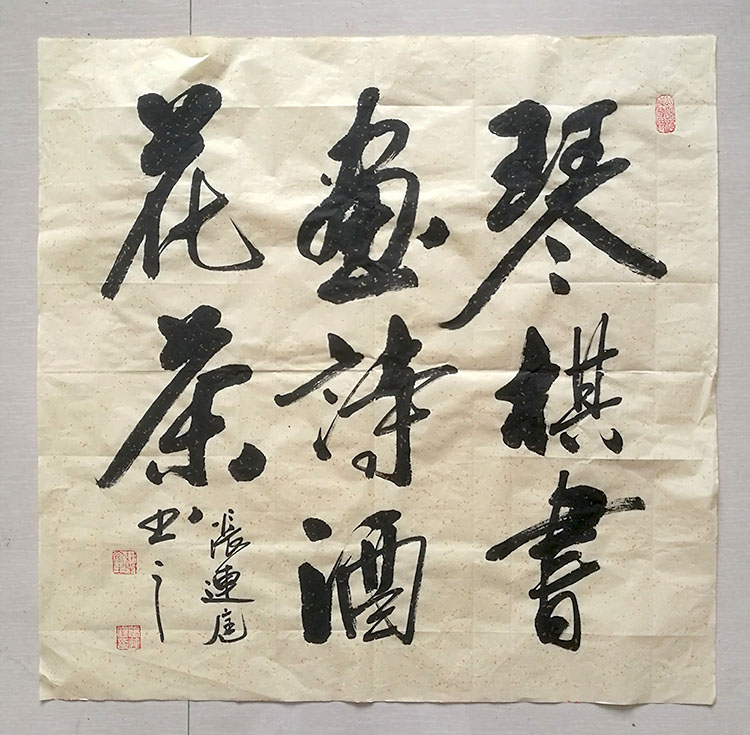 琴棋書
畫詩酒
花茶
張連庭
书